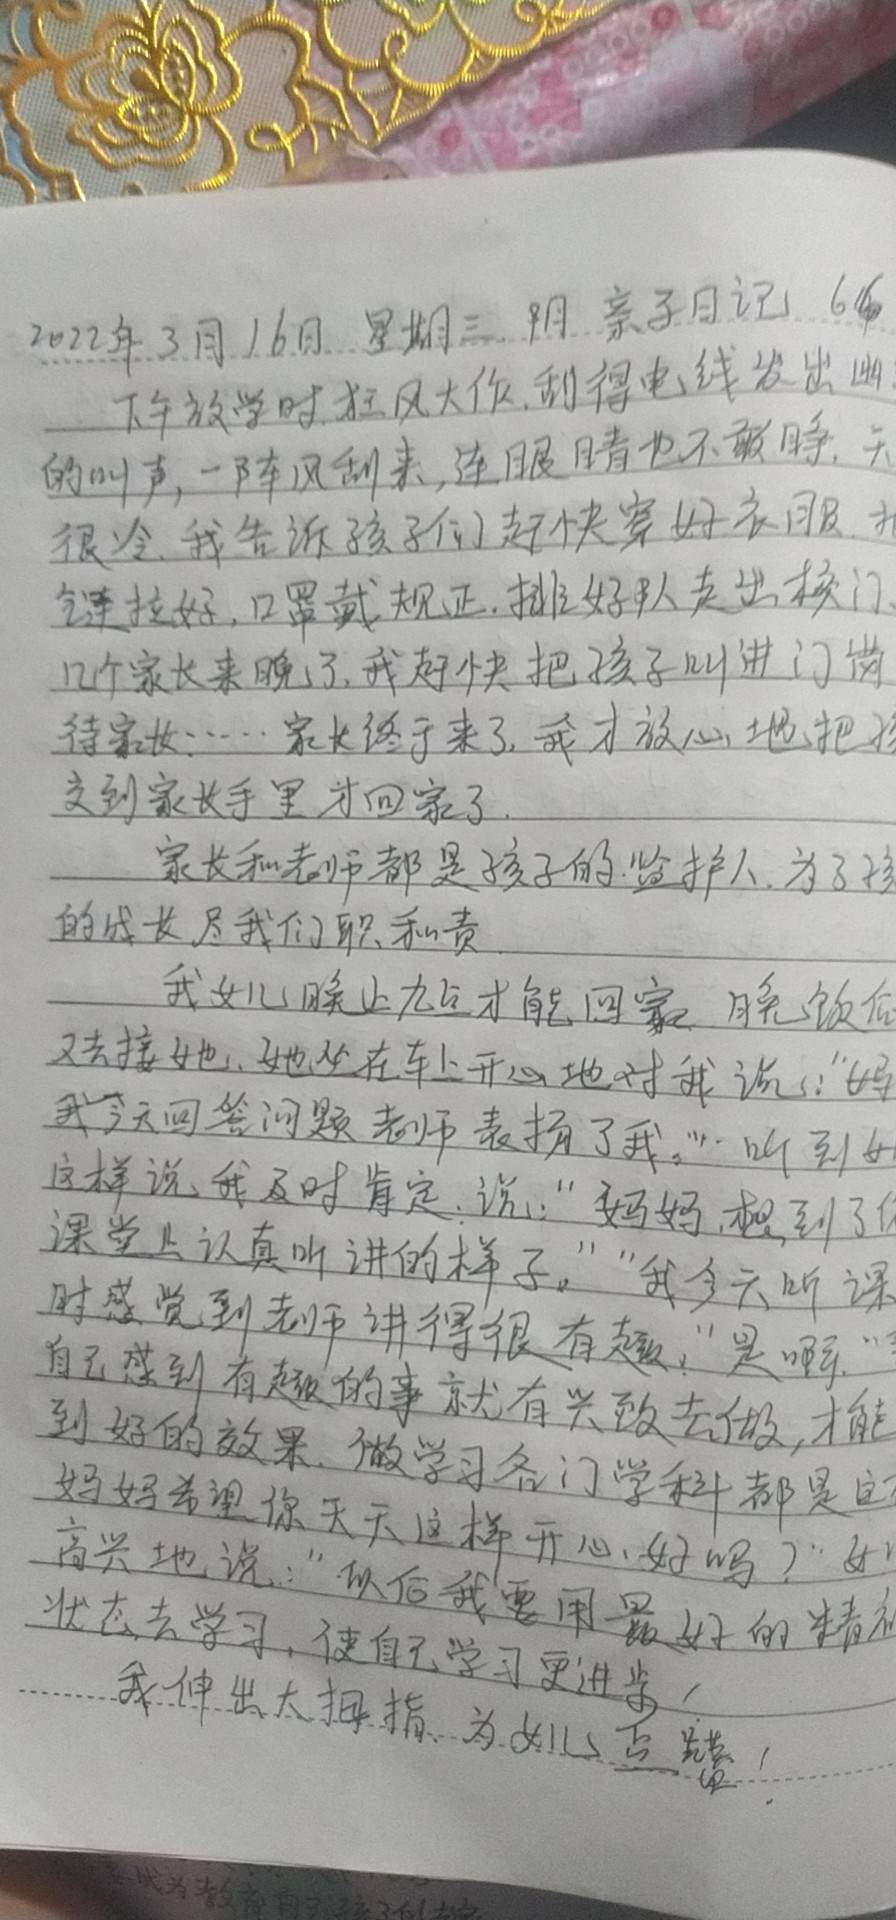 2022年3月16日 星期三 阴 亲子日记 6
下午放学时,狂风大作,刮得电线发出
的叫声,一阵风刮来,连眼睛也不敢睁,天
很冷,我告诉孩子们赶快穿好衣服,
链拉好,口罩戴规正,排好队走出校门、
几个家长来晚了,我赶快把孩子叫进门岗
待家长……家长终于来了,我才放心地把孩
交到家长手里才回家了.
家长和老师都是孩子的监护人,为了孩
的成长尽我们职和责
我女儿晚上九点才能回家 晚饭后
又去接她,她坐在车上开心地对我说:“妈
我今天回答问题老师表扬了我。” 听到女
这样说,我及时肯定,说:“妈妈,想到了你
课堂上认真听讲的样子。” “我今天听课
时感觉到老师讲得很有趣,” 是啊,“
自己感到有趣的事就有兴致去做,才能
到好的效果,做学习各门学科都是这
妈妈希望你天天这样开心,好吗?” 女
高兴地说:“以后我要用最好的精神
状态去学习,使自己学习更进步!
我伸出大拇指,为女儿点赞!